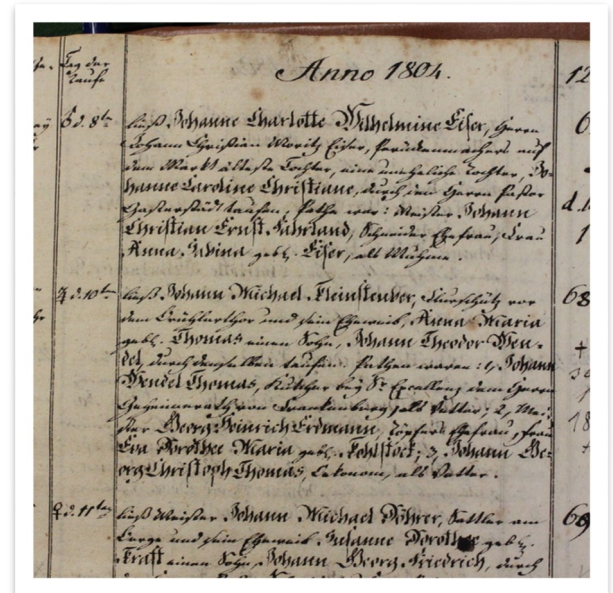 Tag der
Taufe
Anno 1804.
12
d. 8t
ließ Johanne Charlotte Wilhelmine Eiser, Herrn
Johann Christian Moritz Eiser, Peruckenmachers auf
dem Markt älteste Tochter, eine uneheliche Tochter, Jo-
hanne Caroline Christiane, durch den Herrn Pastor
taufen, Pathe war: Meister Johann
Christian Ernst Fuhrland, Schneider Ehefrau, Frau
Anna Sabina geb. Eiser, als Muhme.
d. 10t
ließ Johann Michael Kleinsteuber, vor
dem und sein Eheweib, Anna Maria
geb. Thomas einen Sohn, Johann Theodor Wen-
del, durch denselben taufen. Pathen waren: 1, Johann
Wendel Thomas, Kutscher bey Sr Excellenz dem Herrn
Geheimerath von Frankenberg, als Vetter; 2, Mei-
ster Georg Heinrich Erdmann, Töpfers Ehefrau, Frau
Eva Dorothee Maria geb. Kohlstock; 3, Johann Ge-
org Christoph Thomas, Oekonom, als Vetter.
d. 11ten
ließ Meister Johann Michael Döhrer, Sattler am
Berge und sein Eheweib Susanne Dorothee geb.
Kraft einen Sohn, Johann Georg Friedrich, durch
68
69